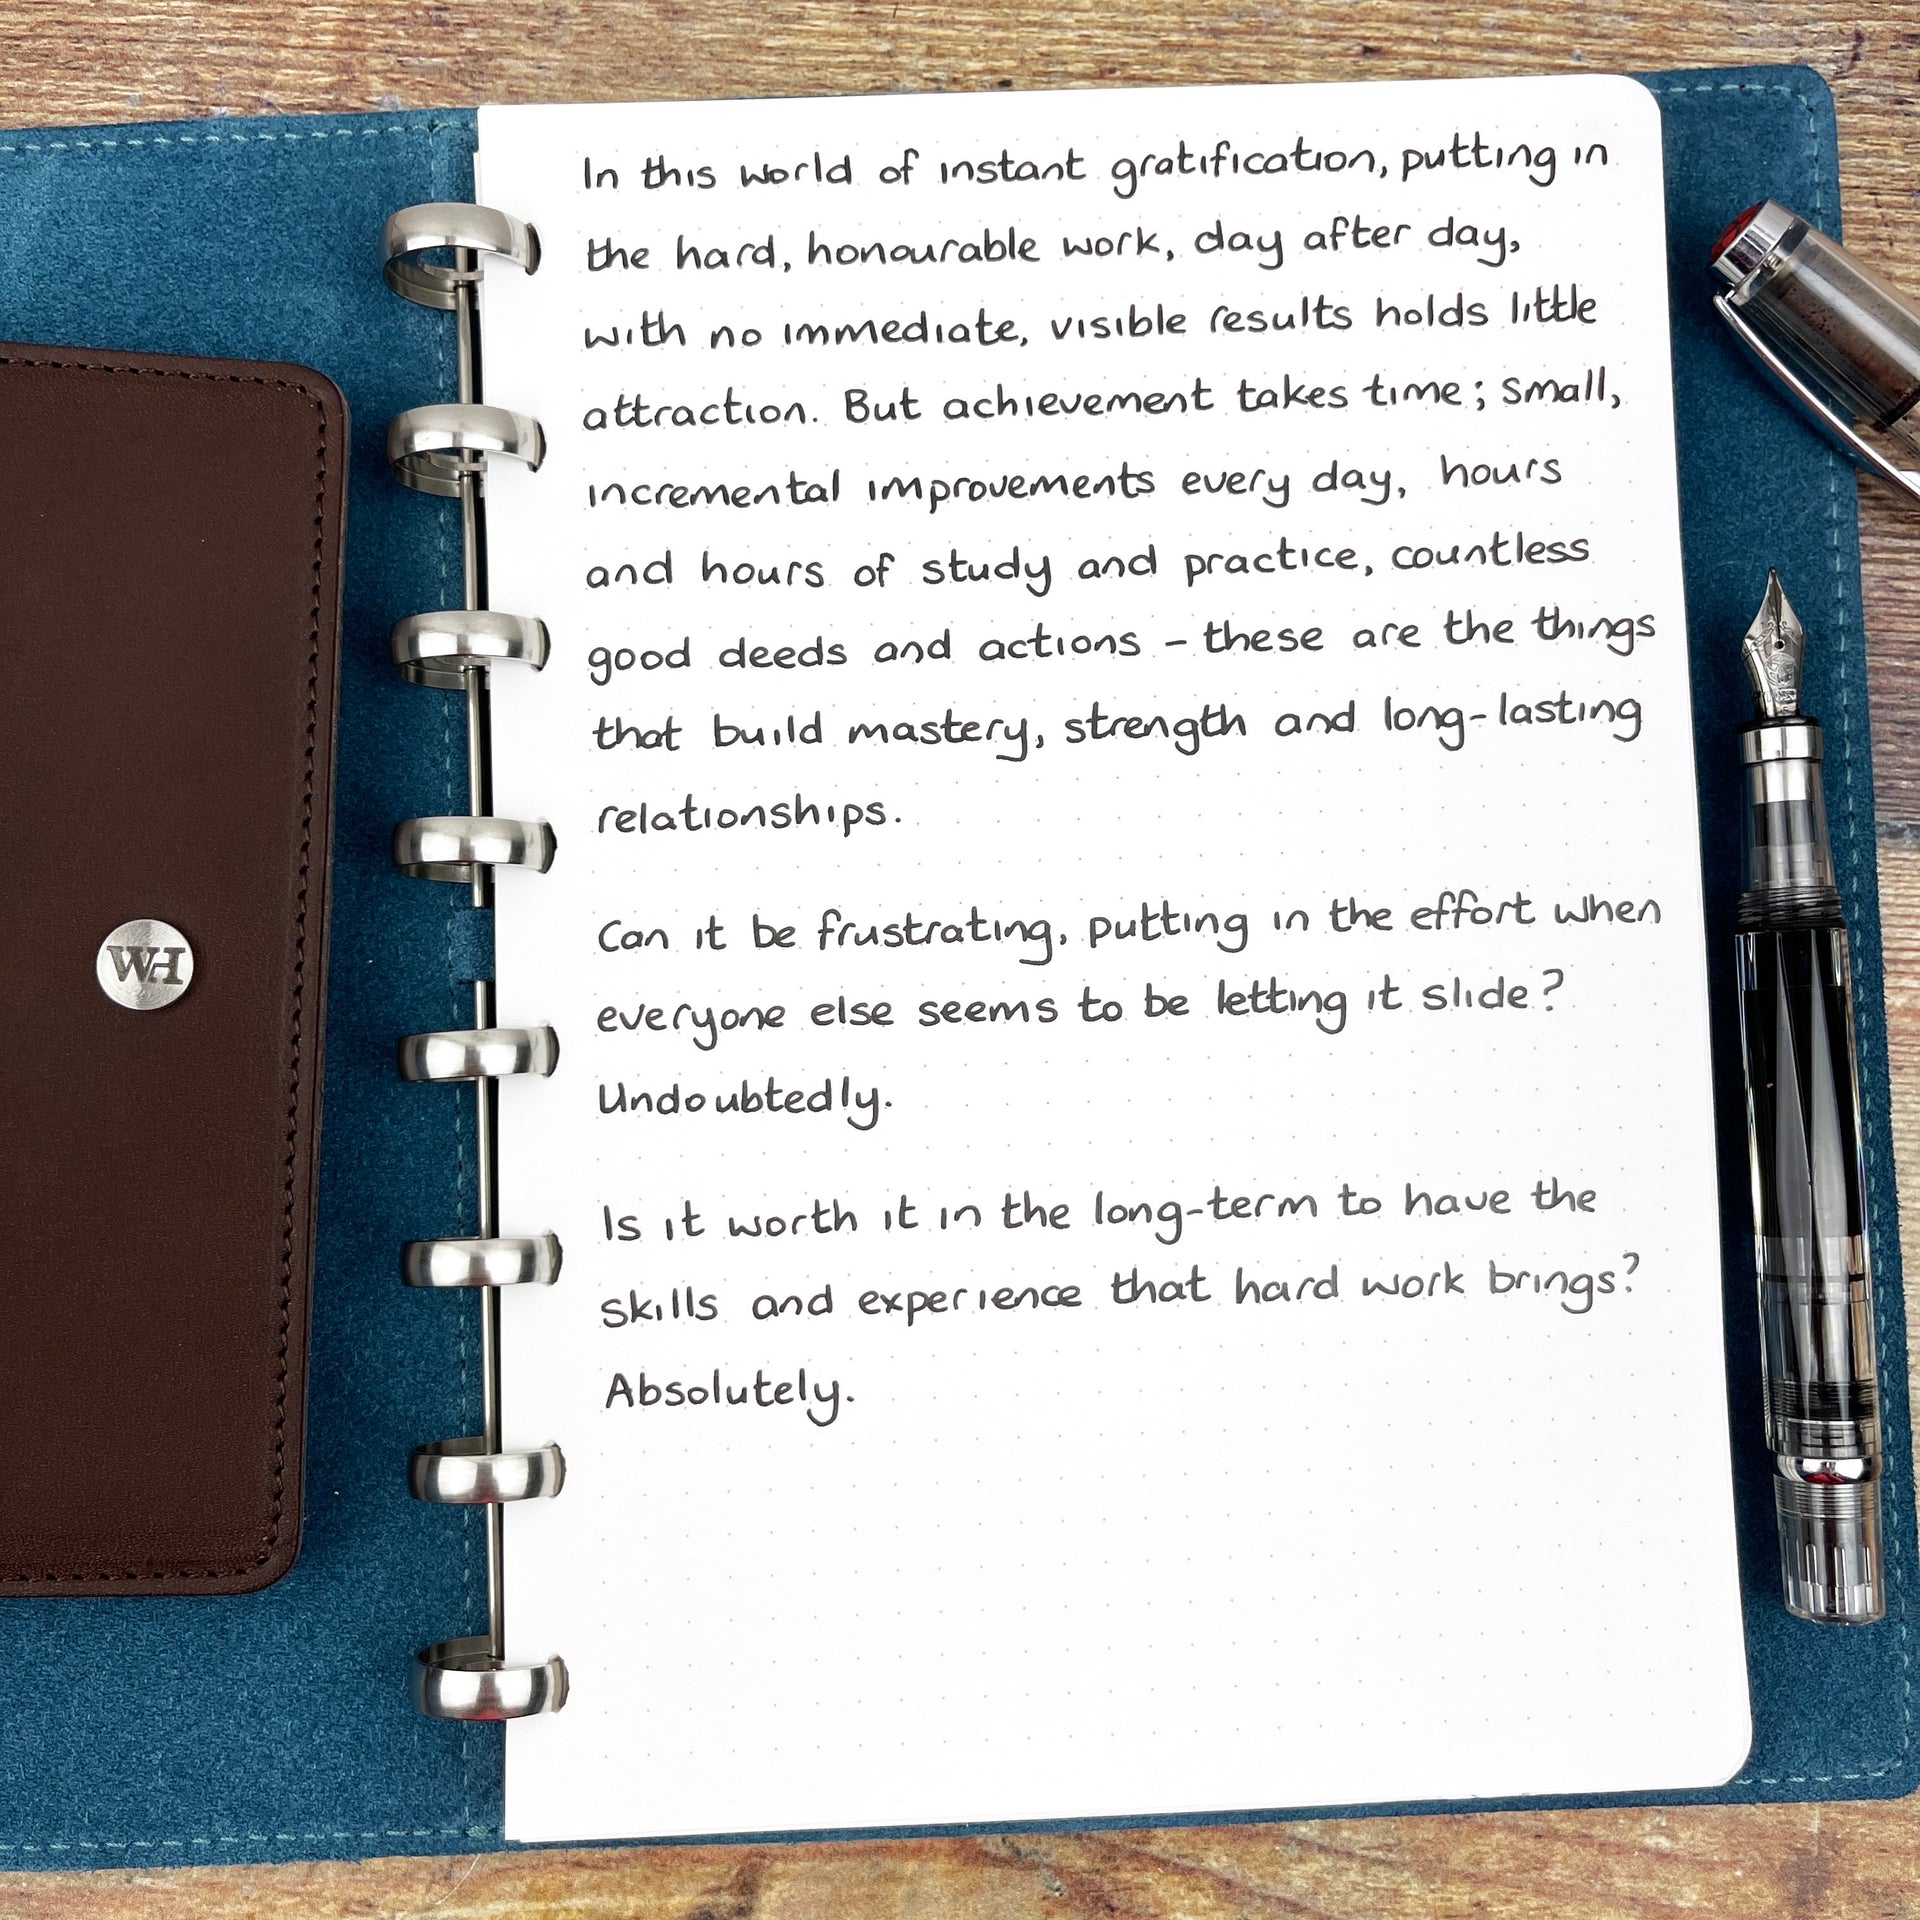 In this world of instant gratification, putting in
the hard, honourable work, day after day,
with no immediate, visible results holds little
attraction. But achievement takes time; small,
incremental improvements every day, hours
and hours of study and practice, countless
good deeds and actions – these are the things
that build mastery, strength and long-lasting
relationships.
Can it be frustrating, putting in the effort when
everyone else seems to be letting it slide?
Undoubtedly.
Is it worth it in the long-term to have the
skills and experience that hard work brings?
Absolutely.
WH